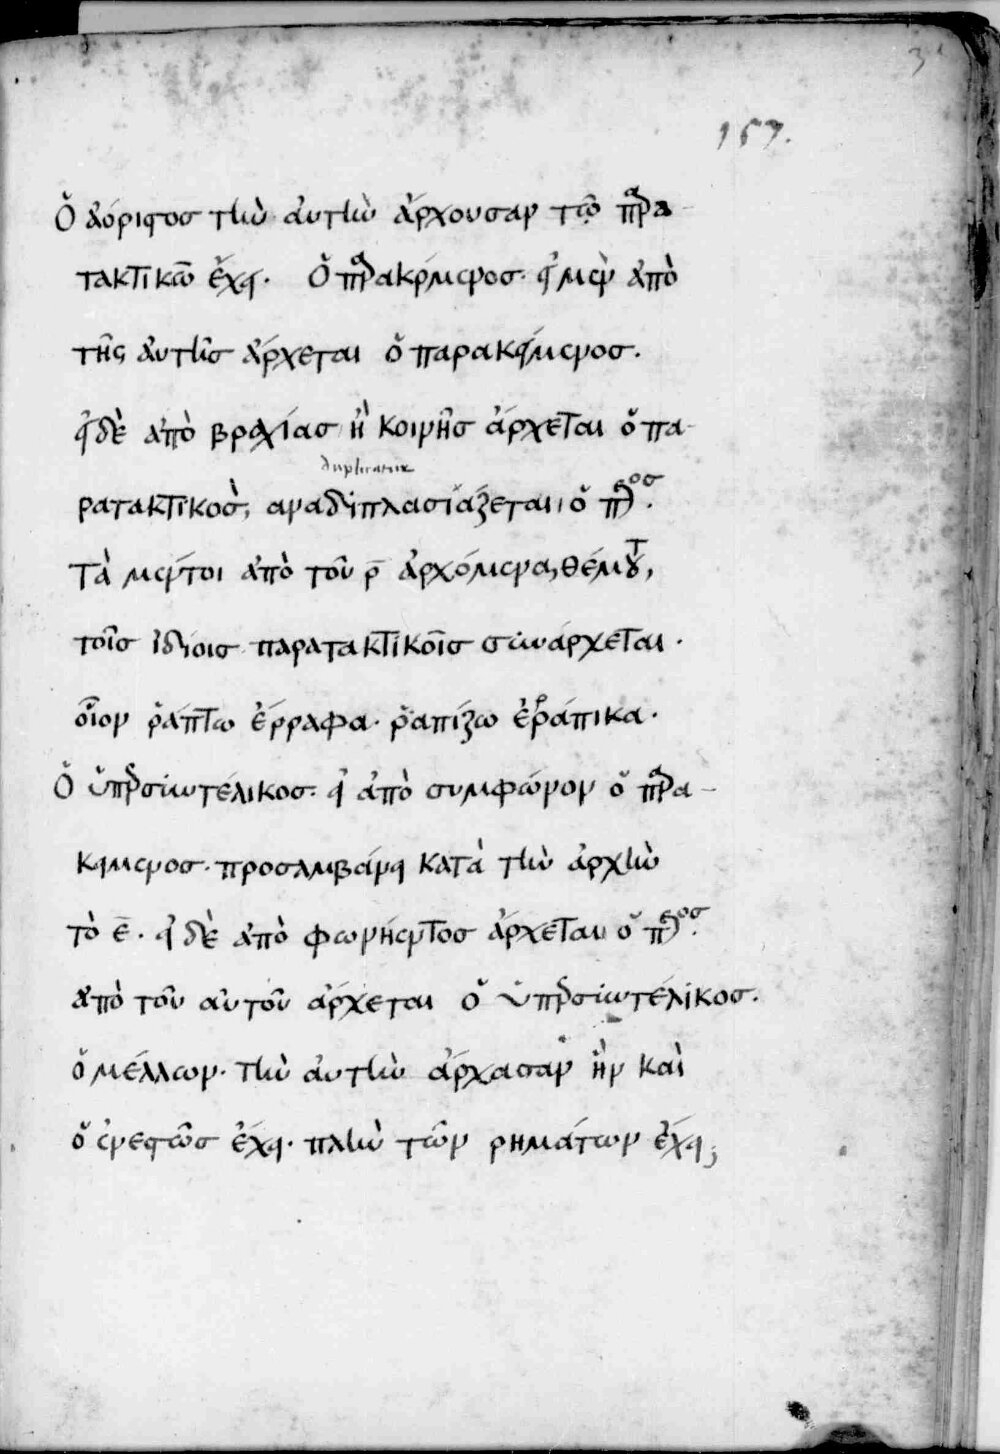 157.
Ὁ ἀόριστος τὴν ἀυτὴν ἄρχουσαν τῶ παρα-
τακτικῶ ἔχει. Ὁ παρακείμενος. εἰ μεν ἀπὸ
τῆς ἀυτῆς ἄρχεται ὁ παρακείμενος.
εἰ δὲ ἀπὸ βραχίας ἢ κοινῆς ἄρχεται ὁ πα-
duplicatur
ρατακτικοσ, αναδιπλασιάζεται ὁ πρ̅οσ.
Τὰ μέντοι ἀπὸ τοῦ ρ̅ ἀρχόμενα, θέμ̅τ,
τοῖς ἰδίοις παρατακτικοῖς συνάρχεται.
οἷον ῥάπτω ἔρραφα. ῥαπίζω ἐρράπικα.
Ὁ ὑπερσυντέλικος. εἰ ἀπὸ συμφώνον ὁ παρα-
κειμενος. προσλμβάνει κατὰ τὴν ἀρχὴν
τὸ ε̅. εἰ δὲ ἀπὸ φωνήεντος ἄρχεται ὁ πρ̅οσ.
ἀπὸ τοῦ αὐτοῦ ἄρχεται ὁ ὑπερσυντέλικος.
ὁ μέλλων. τὴν ἀυτὴν ἄρχασαν ἣν καὶ
ὁ ἐνεστῶς ἔχει. πλὴν τῶν ρημάτων ἔχει;